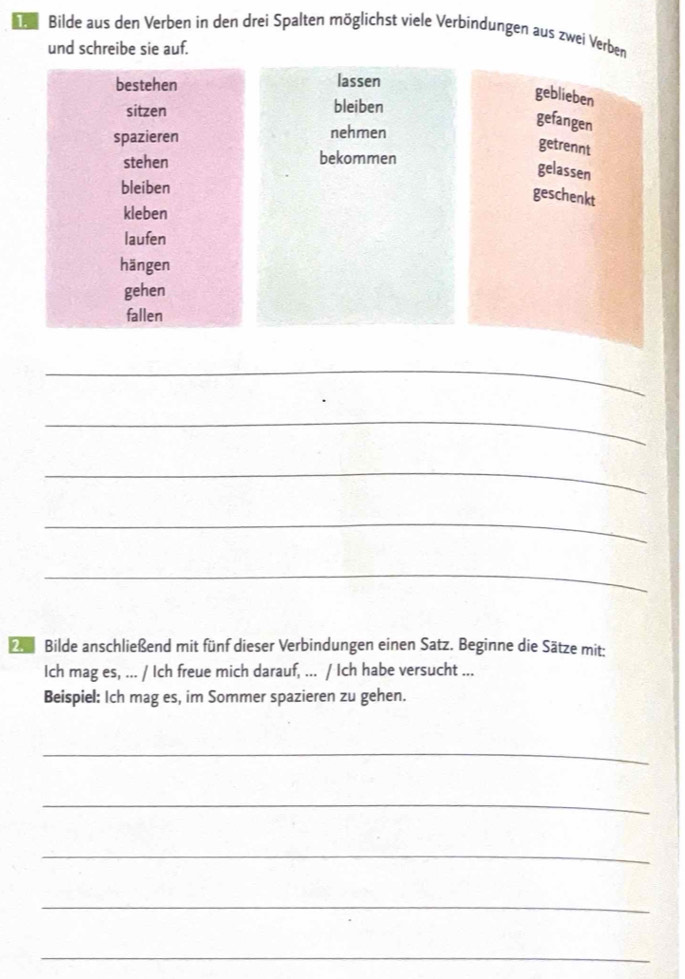 1. Bilde aus den Verben in den drei Spalten möglichst viele Verbindungen aus zwei Verben
und schreibe sie auf.
bestehen
sitzen
spazieren
stehen
bleiben
kleben
laufen
hängen
gehen
fallen
lassen
bleiben
nehmen
bekommen
geblieben
gefangen
getrennt
gelassen
geschenkt
2. Bilde anschließend mit fünf dieser Verbindungen einen Satz. Beginne die Sätze mit:
Ich mag es, ... / Ich freue mich darauf, ... / Ich habe versucht ...
Beispiel: Ich mag es, im Sommer spazieren zu gehen.